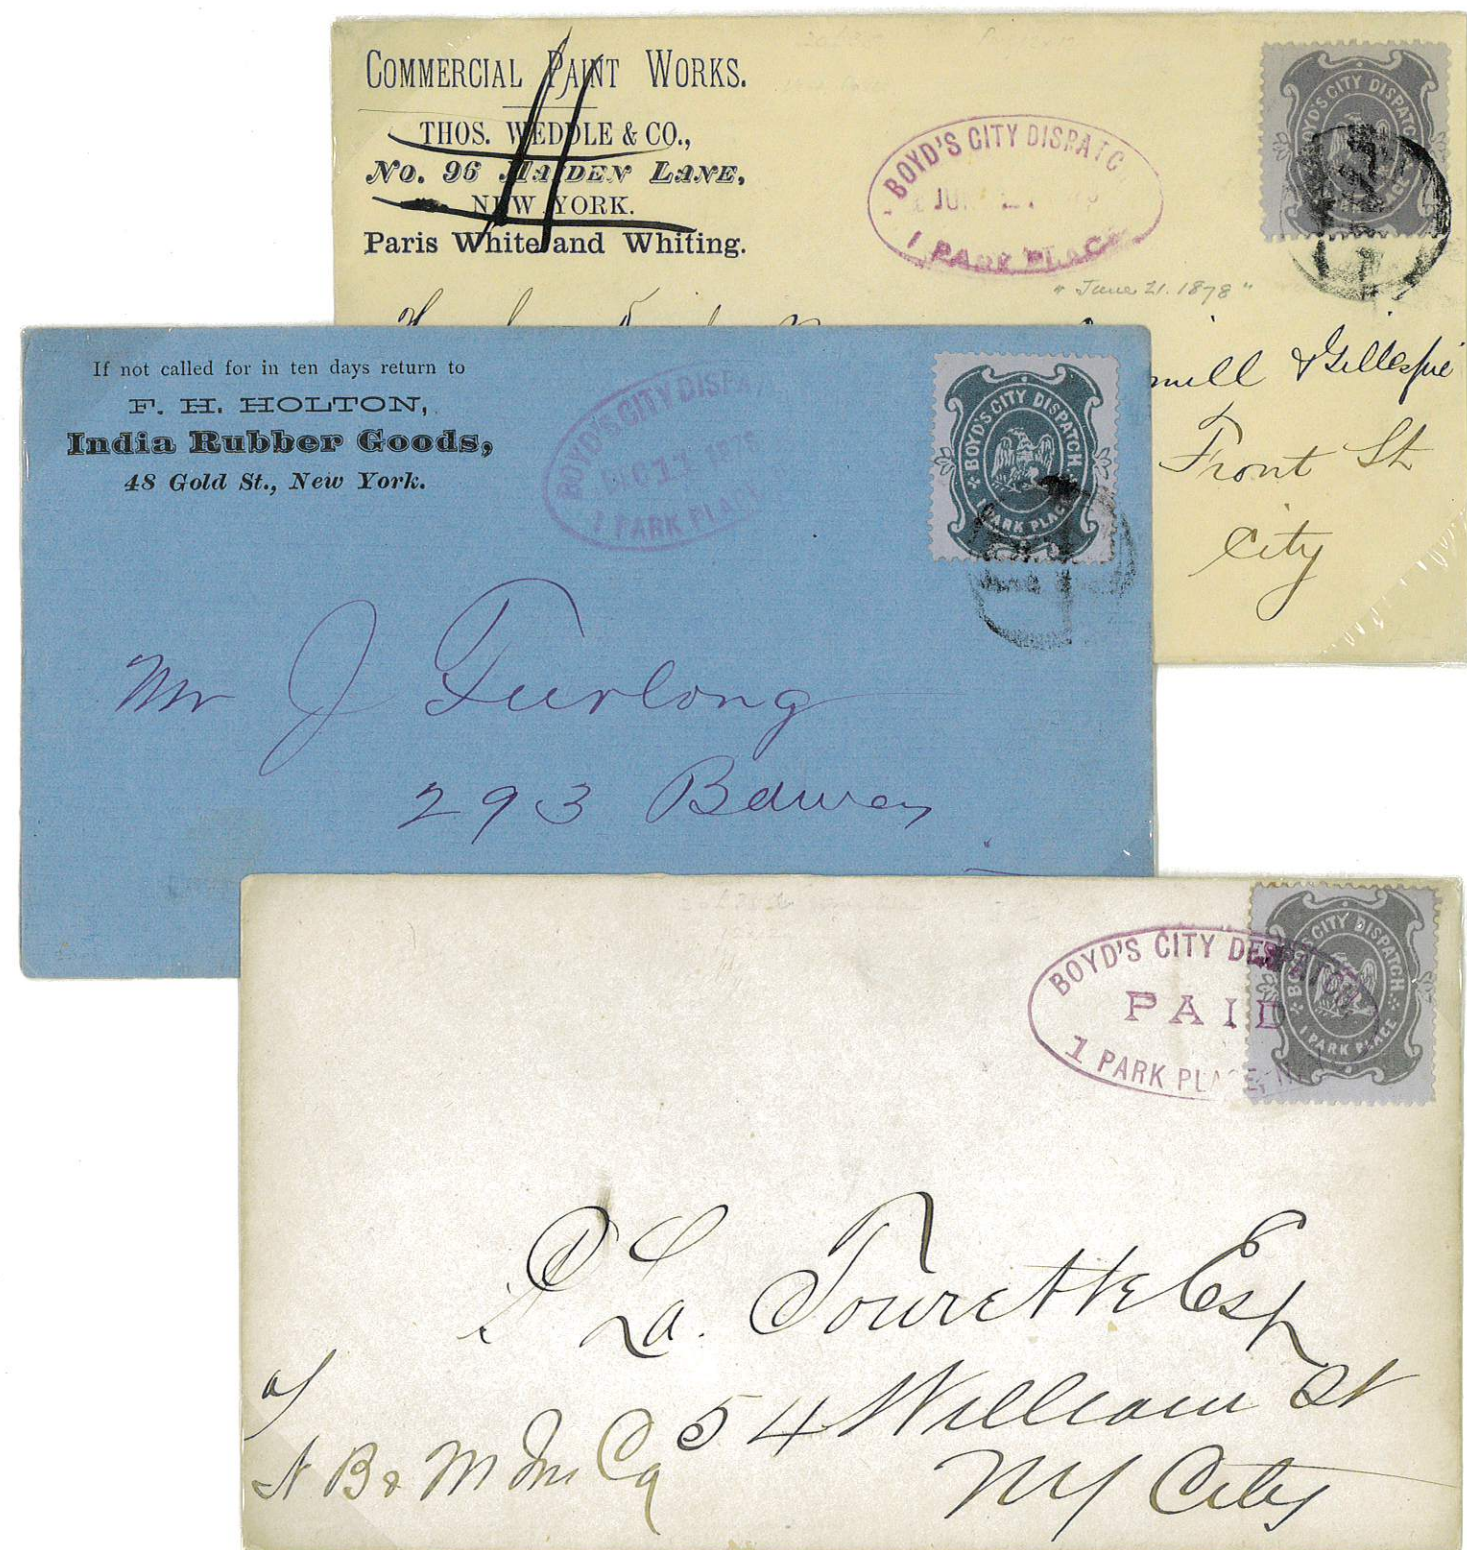 COMMERCIAL PAINT WORKS.
THOS. WEDDLE & CO.,
No. 96 MAIDEN LANE,
NEW YORK.
Paris White and Whiting.
BOYD'S CITY DISPATC
1 PARK PLAC
BOYD'S CITY DISPATCH
PLACE
"June 21. 1878"
& Gillespie
Front St
City
If not called for in ten days return to
F. H. HOLTON,
India Rubber Goods,
48 Gold St., New York.
BOYD'S CITY DISPAT
DEC 11 1878
1 PARK PLAC
BOYD'S CITY DISPATCH
1 PARK PLACE
Mr J Furlong
293 Bowery
BOYD'S CITY DESPATCH
PAID
1 PARK PLACE, N
BOYD'S CITY DISPATCH
1 PARK PLACE
D La. Tourette Esq
54 William St
NY City
N B & M Ins Co